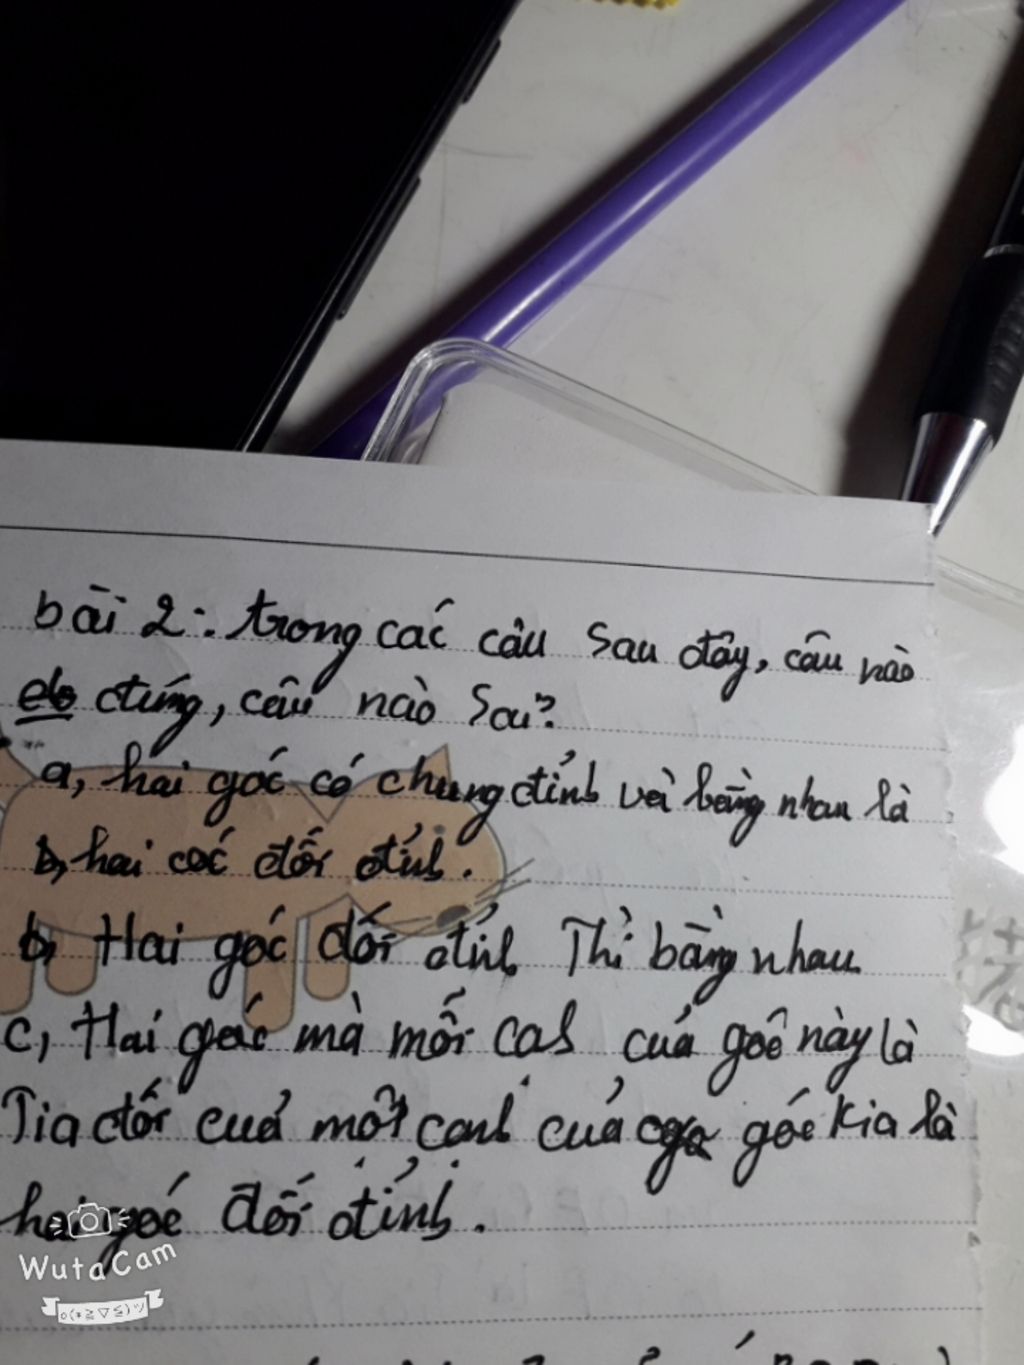 bài 2: trong các câu sau đây, câu nào
đúng, câu nào sai?
a, hai góc có chung đỉnh và bằng nhau là
hai góc đối đỉnh.
b, Hai góc đối đỉnh Thì bằng nhau
c, Hai góc mà mỗi cạnh của góc này là
Tia đối của một cạnh của góc kia là
hai góc đối đỉnh.
WutaCam